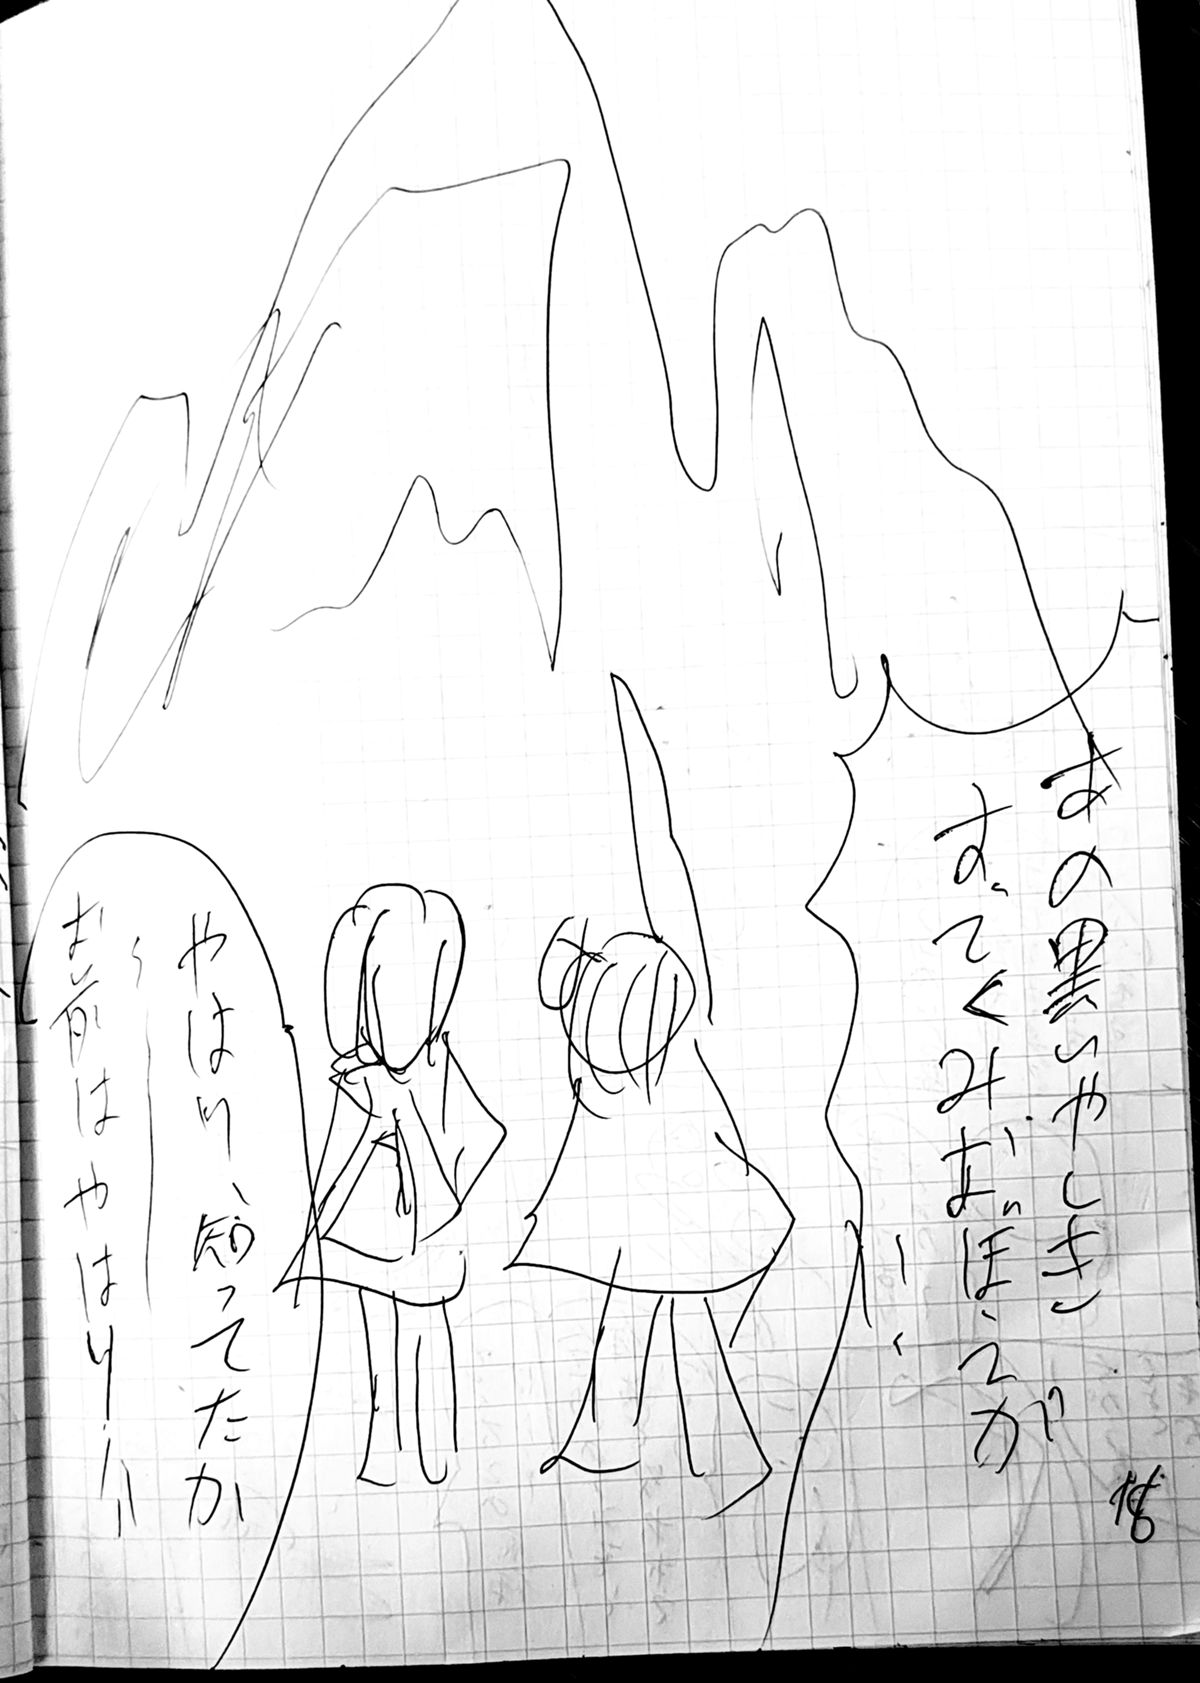 あの黒いやしき
すごくみおぼえが
ーー
やはり、知ってたか
お前はやはりー!!
18